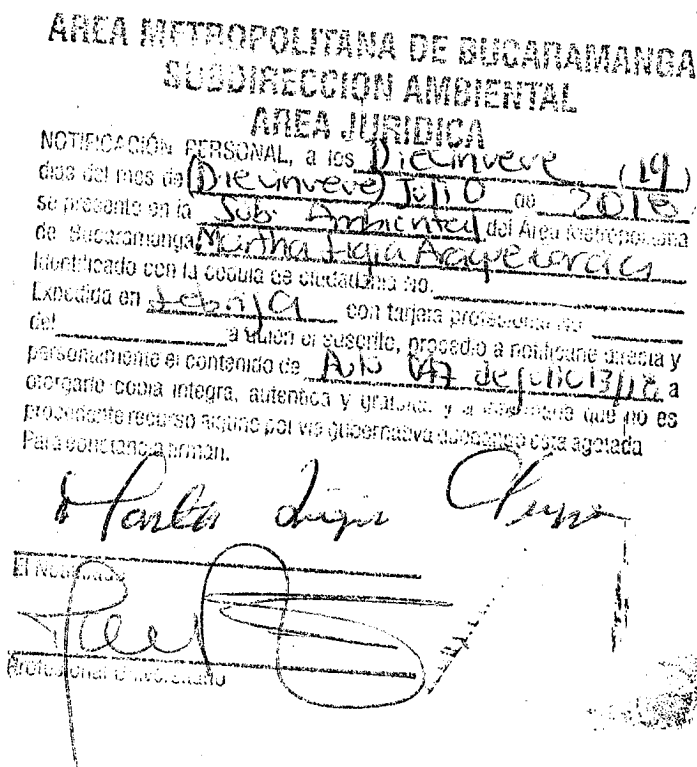 AREA METROPOLITANA DE BUCARAMANGA
SUBDIRECCION AMBIENTAL
AREA JURIDICA
NOTIFICACIÓN PERSONAL, a los Diecinueve (19)
dias del mes de (Diecinueve) Julio de 2018
se presento en la Sub. Ambiental del Área Metropolitana
de Bucaramanga Martha Ligia
Identificado con la cedula de ciudadania No.
Expedida en Lebrija con tarjeta profesional No.
del a quien el suscrito, procedió a notificarle directa y
personalmente el contenido de Auto 047 de julio 13/18 a
otorgarle copia integra, autentica y gratuita y a informarle que no es
procedente recurso alguno por via gubernativa quedando esta agotada
Para constancia firman.
Martha Ligia
El Notificado
Profesional Universitario